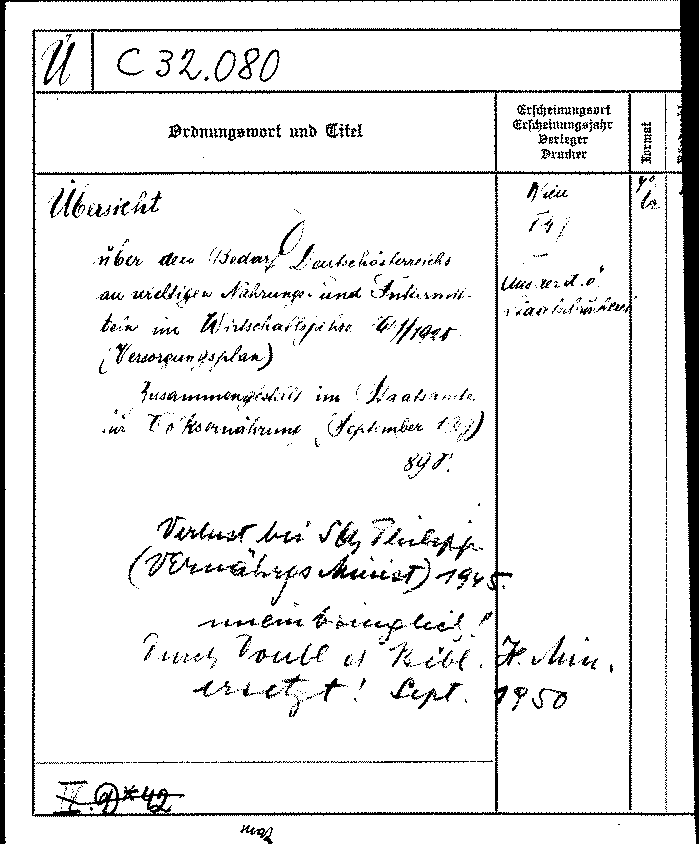 Ü C 32.080
Ordnungswort und Titel
Erscheinungsort
Erscheinungsjahr
Verleger
Drucker
Format
Übersicht
über den Bedarf Deutschösterreichs
an wichtigen Nahrungs- und Futtermit-
teln im Wirtschaftsjahre /1920
(Versorgungsplan)
Zusammengestellt im Staatsamte
für Volksernährung (September 19)
89 S.
Wien
4°
Verlust bei Philipp
1945.
uneinbringlich!
Durch Doubl d Bibl. H. Min.
ersetzt! Sept. 1950